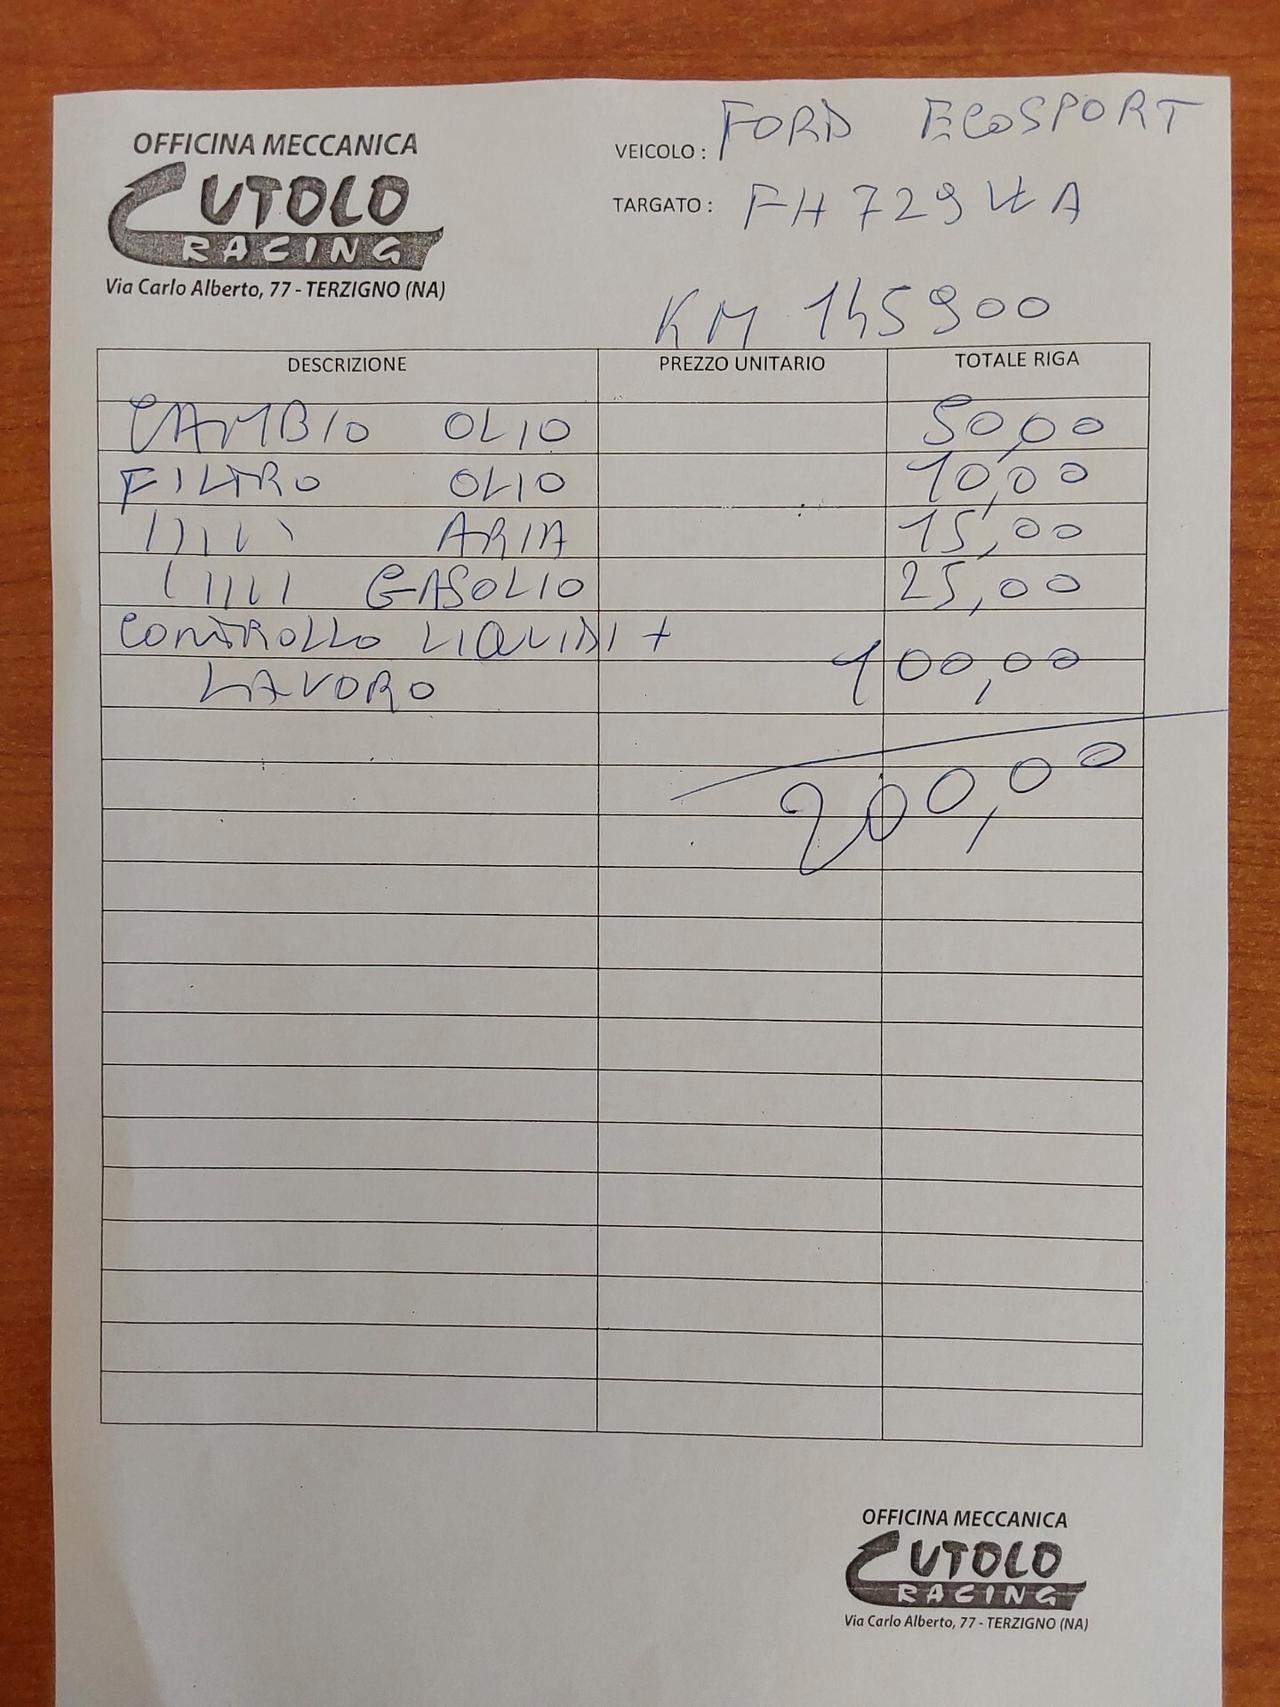 OFFICINA MECCANICA
CUTOLO
RACING
Via Carlo Alberto, 77 - TERZIGNO (NA)
VEICOLO : FORD ECOSPORT
TARGATO :
KM 145900
DESCRIZIONE PREZZO UNITARIO TOTALE RIGA
CAMBIO OLIO 50,00
FILTRO OLIO 10,00
ARIA 15,00
GASOLIO 25,00
CONTROLLO LIQUIDI +
LAVORO 100,00
200,00
OFFICINA MECCANICA
CUTOLO
RACING
Via Carlo Alberto, 77 - TERZIGNO (NA)